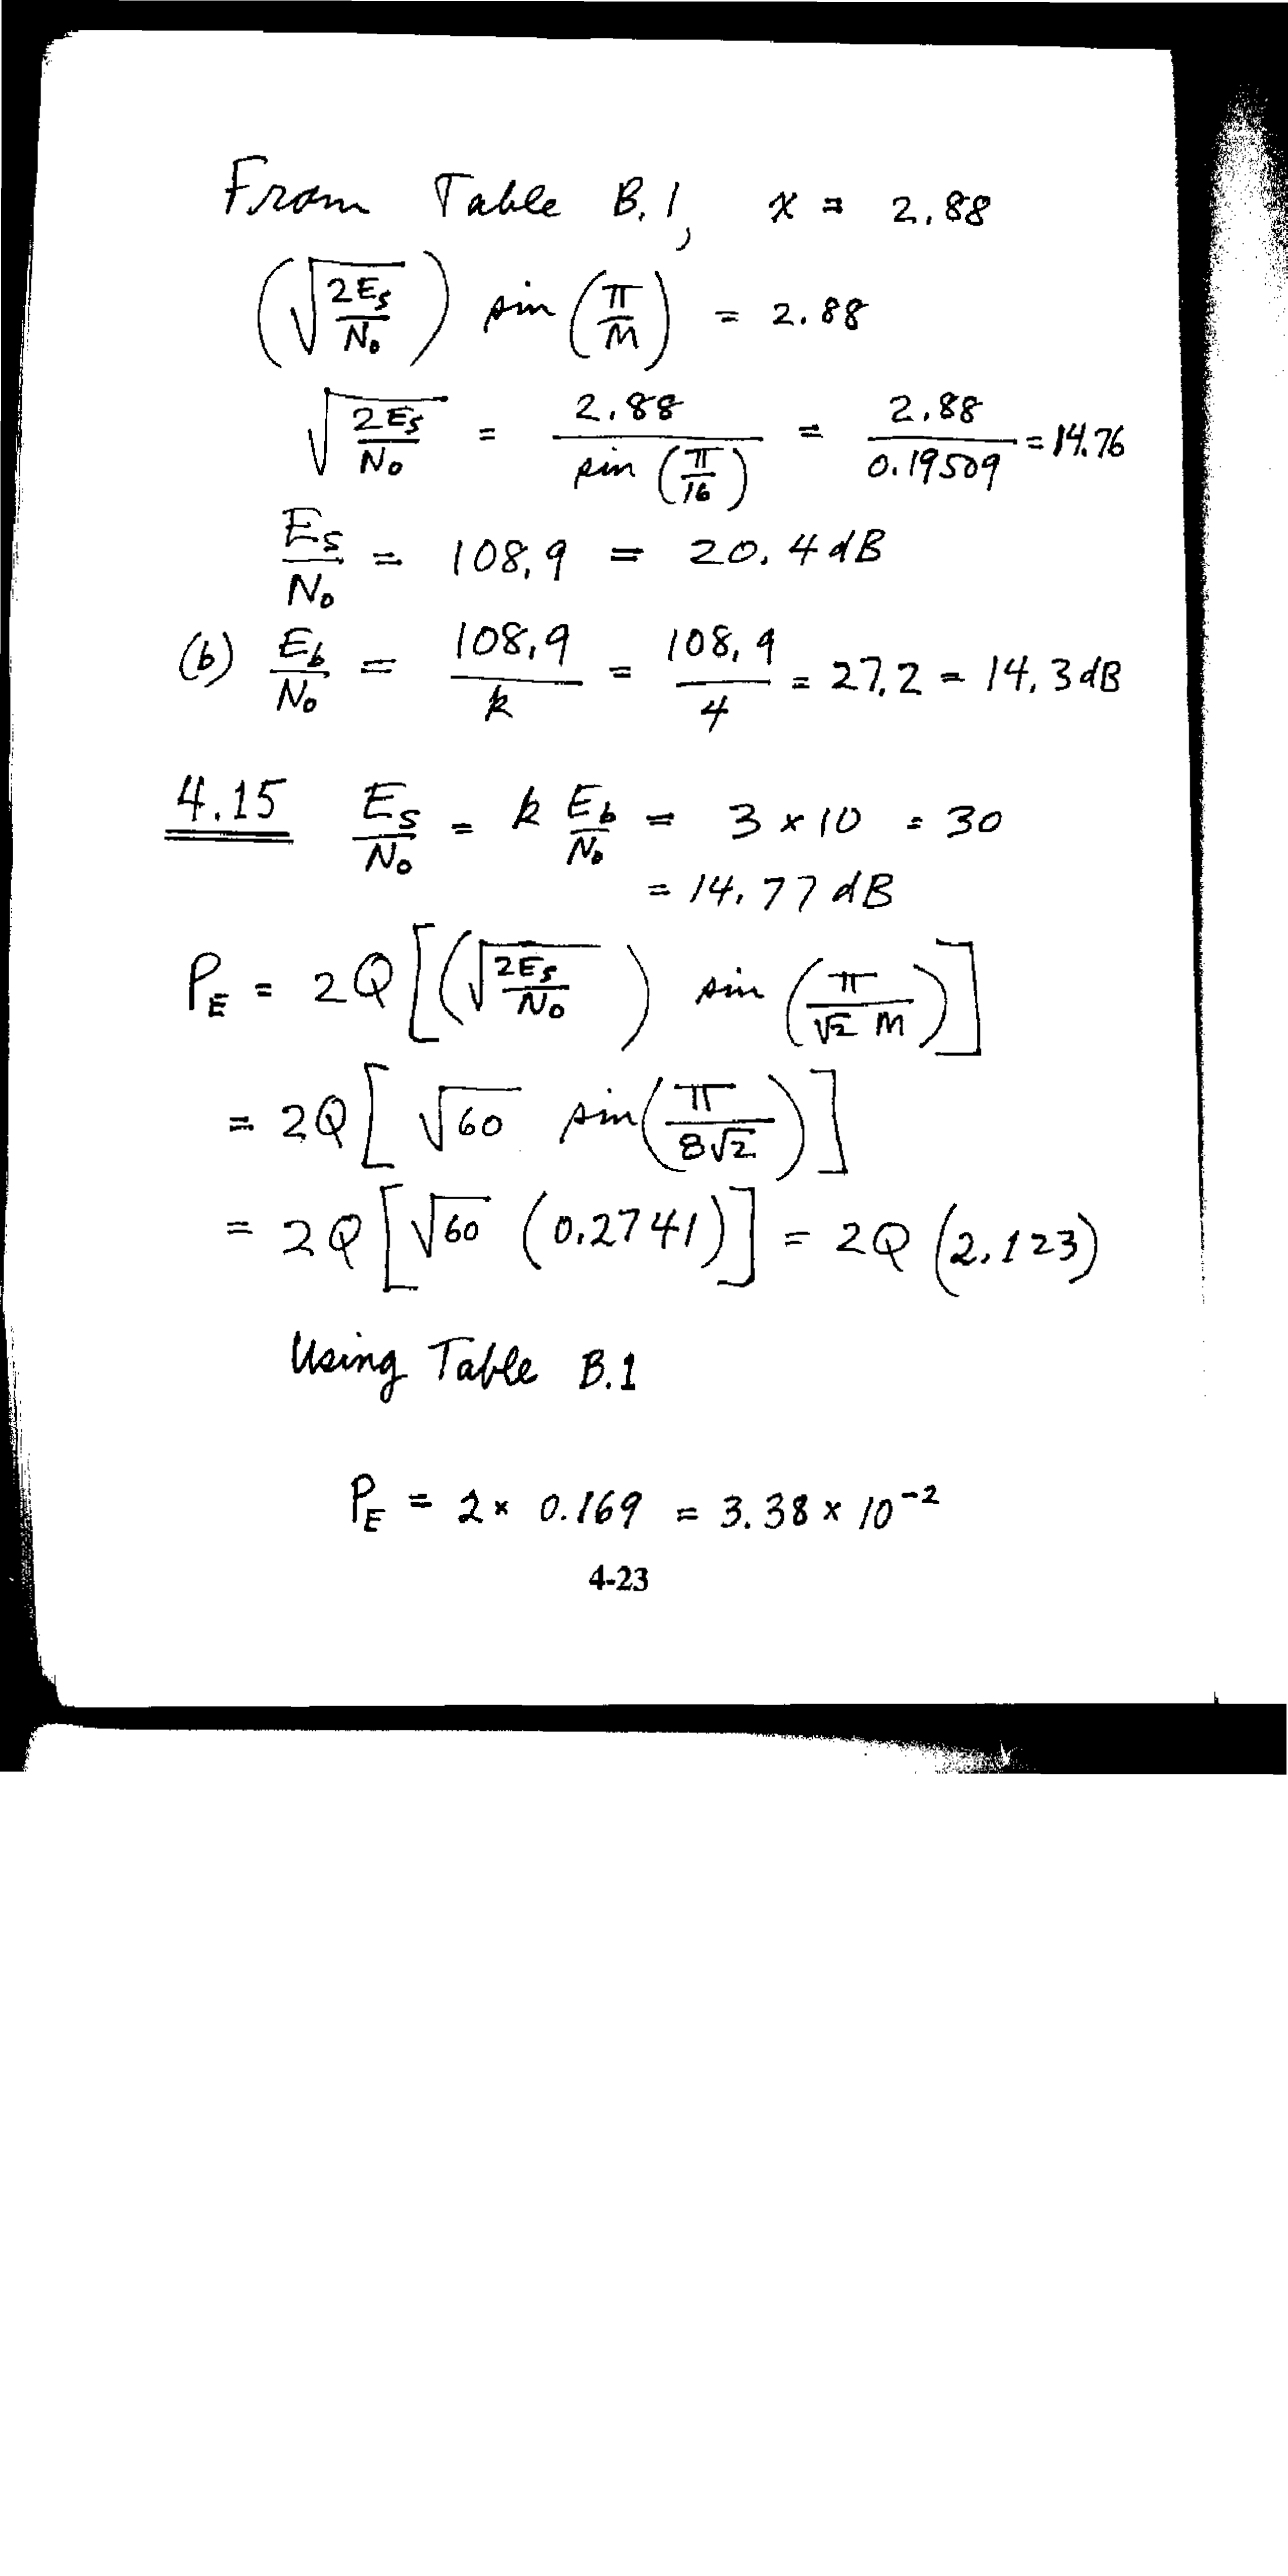 From Table B.1, x = 2.88
(√(2Es/No)) sin(π/M) = 2.88
√(2Es/No) = 2.88/sin(π/16) = 2.88/0.19509 = 14.76
Es/No = 108.9 = 20.4 dB
(b) Eb/No = 108.9/k = 108.9/4 = 27.2 = 14.3 dB
4.15 Es/No = k Eb/No = 3 × 10 = 30
= 14.77 dB
PE = 2Q[(√(2Es/No)) sin(π/(√2 M))]
= 2Q[√60 sin(π/(8√2))]
= 2Q[√60 (0.2741)] = 2Q(2.123)
Using Table B.1
PE = 2 × 0.169 = 3.38 × 10⁻²
4-23